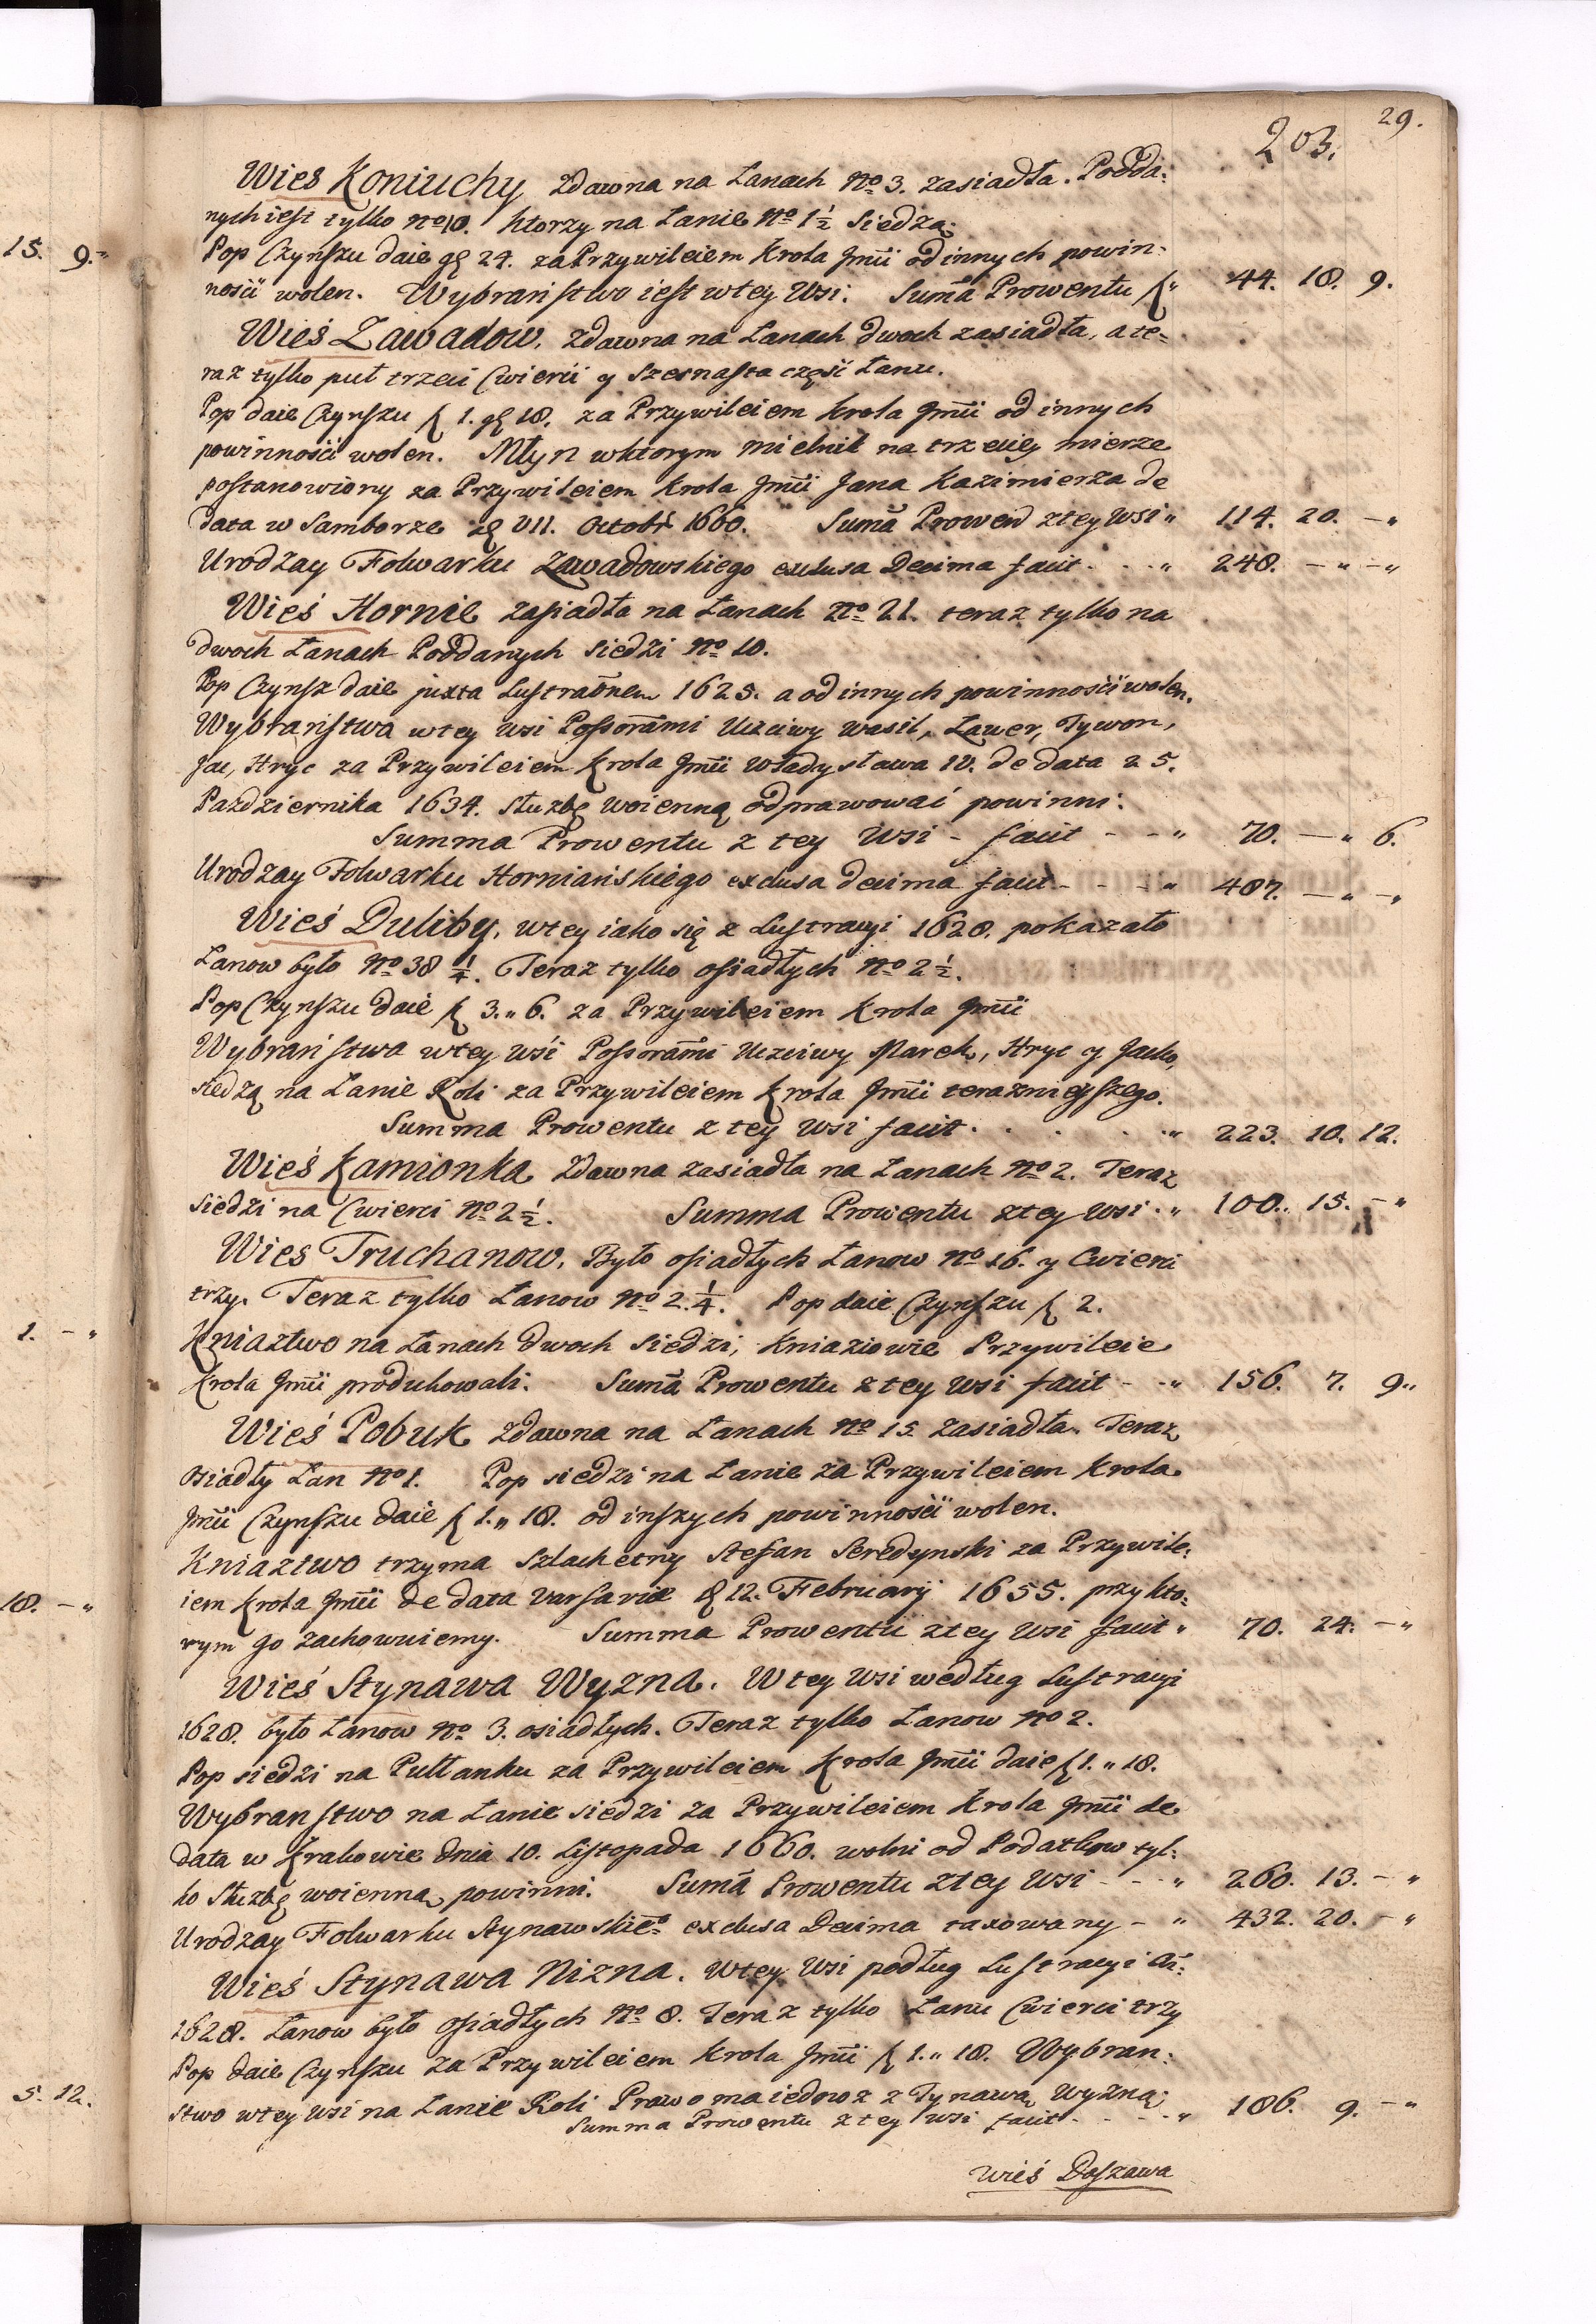 29.
203.
Wieś Koniuchy zdawna na Łanach No 3. zasiadła. Podda:
nych iest tylko No 10. ktorzy na Łanie No 1½ siedzą.
Pop Czynszu daie gę 24. za Przywileiem Krola Jmći od innych powin:
nośći wolen. Wybraństwo iest w tey Wsi. Summa Prowentu f " 44. 18. 9.
Wieś Zawadow, zdawna na Łanach dwoch zasiadła, a te:
raz tylko puł trzeci Cwierci y szesnasta część Łanu.
Pop daie Czynszu f 1. gę 18. za Przywileiem Krola Jmći od innych
powinnośći wolen. Młyn w ktorym mielnik na trzeciey mierze
postanowiony za Przywileiem Krola Jmći Jana Kazimierza de
data w Samborze VII. Octobr 1660. Summa Prowen z tey Wsi " 114. 20. - "
Urodzay Folwarku Zawadowskiego exclusa Decima facit - - " 248. - " - "
Wieś Hornie zasiadła na Łanach No 21. teraz tylko na
dwoch Łanach Poddanych siedzi No 10.
Pop Czynsz daie juxta Lustraõnem 1625. a od innych powinnośći wolen.
Wybraństwa w tey wsi Possorami Uczciwy Wasil, Ławer, Tywon,
Jac, Hryc za Przywileiem Krola Jmći Władysława IV. de data 25.
Pazdziernika 1634. służbę woienną odprawować powinni.
Summa Prowentu z tey Wsi - facit - - " 70. - " 6.
Urodzay Folwarku Horniańskiego exclusa decima facit - - - " 407. - " - "
Wieś Duliby, w tey iako się z Lustracyi 1628. pokazało
Łanow było No 38¼. Teraz tylko osiadłych No 2½.
Pop Czynszu daie f 3. " 6. za Przywileiem Krola Jmći
Wybraństwa w tey wśi Possorami Uczciwy Marek, Hryc y Jacko,
siedzą na Łanie Roli za Przywileiem Krola Jmći teraznieyszego.
Summa Prowentu z tey Wsi facit . . . . " 223. 10. 12.
Wieś Kamionka zdawna zasiadła na Łanach No 2. Teraz
siedzi na Cwierci No 2½. Summa Prowentu z tey wsi . " 100. 15. - "
Wieś Truchanow, Było osiadłych Łanow No 16. y Cwierci
trzy. Teraz tylko Łanow No 2.¼. Pop daie Czynszu f 2.
Kniaztwo na Łanach dwoch siedzi, Kniaziowie Przywileie
Krola Jmći produkowali. Summa Prowentu z tey wsi facit - - " 156. 7. 9 "
Wieś Pobuk zdawna na Łanach No 15 zasiadła. Teraz
osiadły Łan No 1. Pop siedzi na Łanie za Przywileiem Krola
Jmći Czynszu daie f 1. " 18. od inszych powinnośći wolen.
Kniaztwo trzyma Szlachetny Stefan Seredynski za Przywile:
iem Krola Jmći de data Varsaviæ 12. Februarij 1655. przy kto:
rym go zachowuiemy. Summa Prowentu z tey Wsi facit " 70. 24. - "
Wieś Stynawa Wyzna. W tey Wsi według Lustracyi
1628. było Łanow No 3. osiadłych. Teraz tylko Łanow No 2.
Pop siedzi na Pułłanku za Przywileiem Krola Jmći daie f 1. " 18.
Wybranstwo na Łanie siedzi za Przywileiem Krola Jmći de
data w Krakowie dnia 10. Listopada 1660. wolni od Podatkow tyl:
ko Służbę woienną powinni. Summa Prowentu z tey Wsi - - - " 260. 13. - "
Urodzay Folwarku Stynawskieo exclusa Decima taxowany - " 432. 20. - "
Wieś Stynawa Nizna. w tey Wsi podług Lustracyi Añ:
1628. Łanow było osiadłych No 8. Teraz tylko Łanu Cwierci trzy
Pop daie Czynszu za Przywileiem Krola Jmći f 1. " 18. Wybran:
stwo w tey wsi na Łanie Roli Prawo ma iednoz z Tynawą Wyzną.
Summa Prowentu z tey wsi facit - - - " 186. 9. - "
Wieś Daszawa
15. 9. - "
1. - "
18. - "
5. 12.